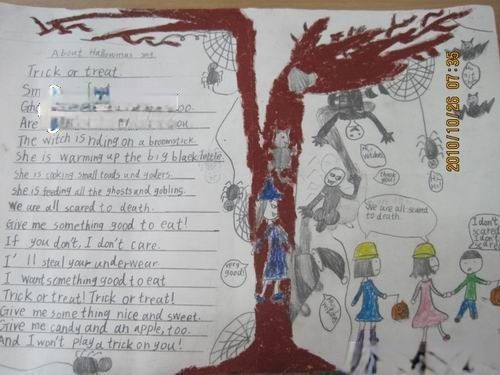 About Hallowmas Day
Trick or treat.
Sm
Gh oo.
Are ou
The witch is riding on a broomstick.
She is warming up the big black kettle.
She is cooking small toads and
She is feeding all the ghosts and gobling.
We are all scared to death.
Give me something good to eat!
If you don't, I don't care.
I'll steal your underwear
I want something good to eat
Trick or treat! Trick or treat!
Give me something nice and sweet.
Give me candy and an apple, too.
And I won't play a trick on you!
very good!
We are all scared to death.
I don't scared
I don't scared
2010/10/26 07:35